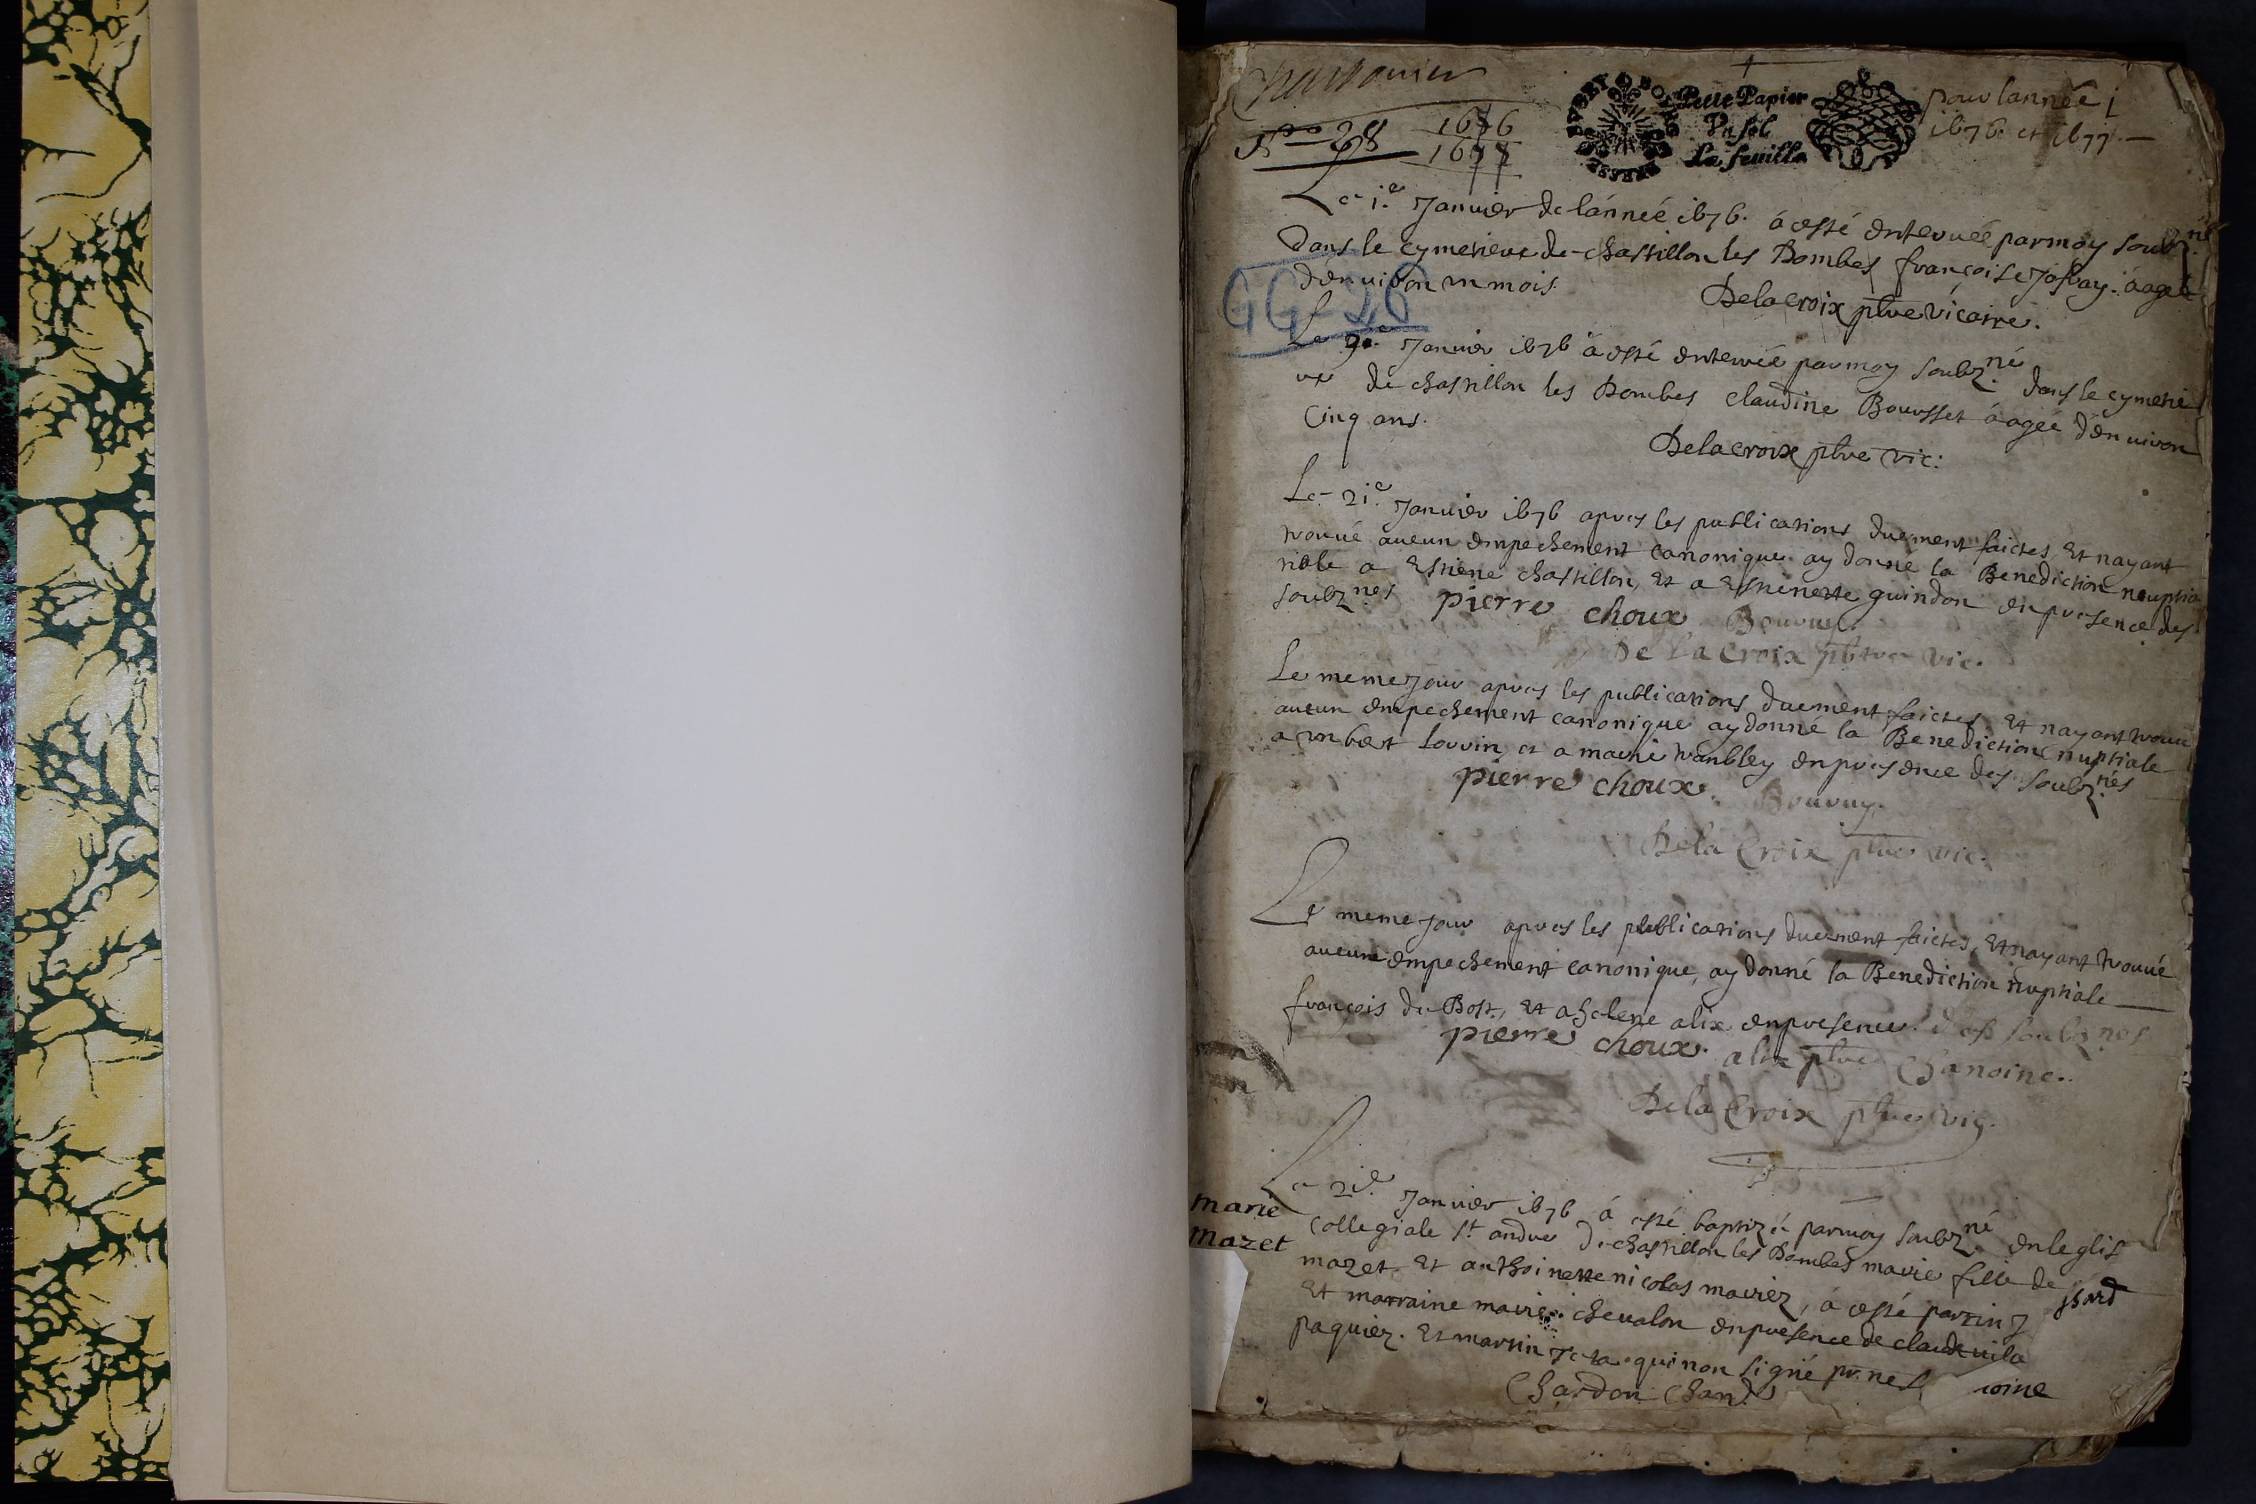 No 28 1676
1677
Petit Papier
Un sol
La feuille
pour lannéé
1676 et 1677
GG-26
Le 1e Janvier de lánneé 1676. á esté enterreé par moy soubz né
Dans le cymetiere de chastillon les Dombes françoise áageé
dénuiron un mois. Delacroix pbre vicaire.
Le Janvier 1676 á esté enterreé par moy soubz né dans le cymetie
re de chastillon les Dombes claudine Bousset áageé dénuiron
Cinq ans.
Delacroix pbre vic:
Le 21e Janvier 1676 apres les publications duement faictes, Et nayant
trouué aucun empechement canonique ay donné la Benediction nuptia
a Estiene chastillon, Et a Estienette guindon en presence des
soubz nes pierre choux
De la Croix pbre vic.
Le meme Jour apres les publications duement faictes Et nayant trouue
aucun empechement canonique ay donné la Benediction nuptiale
a et a marie en presence des soubz nés
pierre choux.
De la Croix pbre vic.
Le meme Jour apres les publications duement faictes, Et nayant trouué
aucun empechement canonique, ay donné la Benediction nuptiale
françois du Bost, Et a helene alix en presence des soubz nes
pierre choux. alix pbre Chanoine.
De la Croix pbre vic.
marie
mazet
Le 21e Janvier 1676 á esté baptizé par moy soubz né en leglis
Collegiale st andre de chastillon les Dombes marie fille de
mazet Et anthoinette nicolas mariez, á esté parrin
Et marraine marie chevalon en presence de claude
paquier. Et martin qui non signé
Chardon Chan